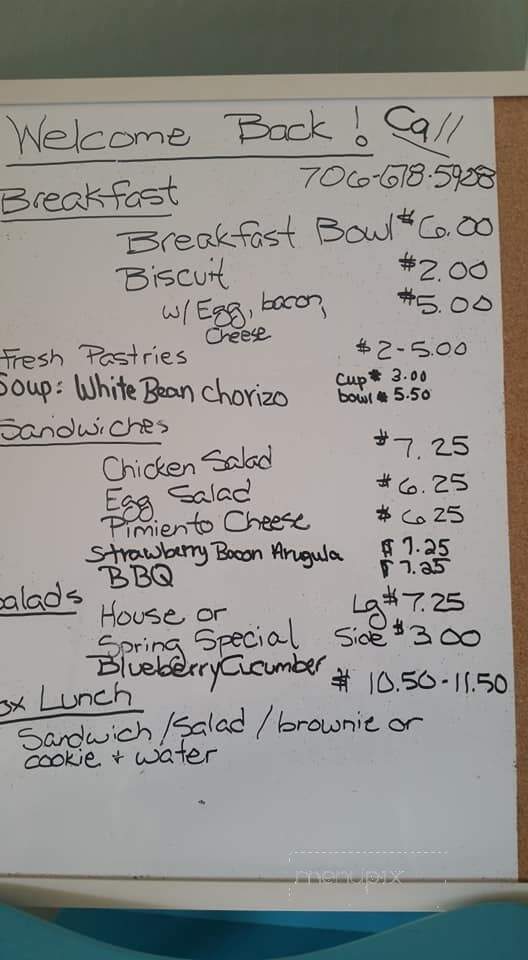 Welcome Back! Call
706-678-5928
Breakfast
Breakfast Bowl $6.00
Biscuit $2.00
w/ Egg, bacon, $5.00
Cheese
Fresh Pastries $2-5.00
Soup: White Bean Chorizo Cup $3.00
bowl $5.50
Sandwiches
Chicken Salad $7.25
Egg Salad $6.25
Pimiento Cheese $6.25
Strawberry Bacon Arugula $7.25
BBQ $7.25
alads House or Lg $7.25
Spring Special Side $3.00
Blueberry Cucumber
ox Lunch $10.50-11.50
Sandwich/Salad/brownie or
cookie + water
menupix